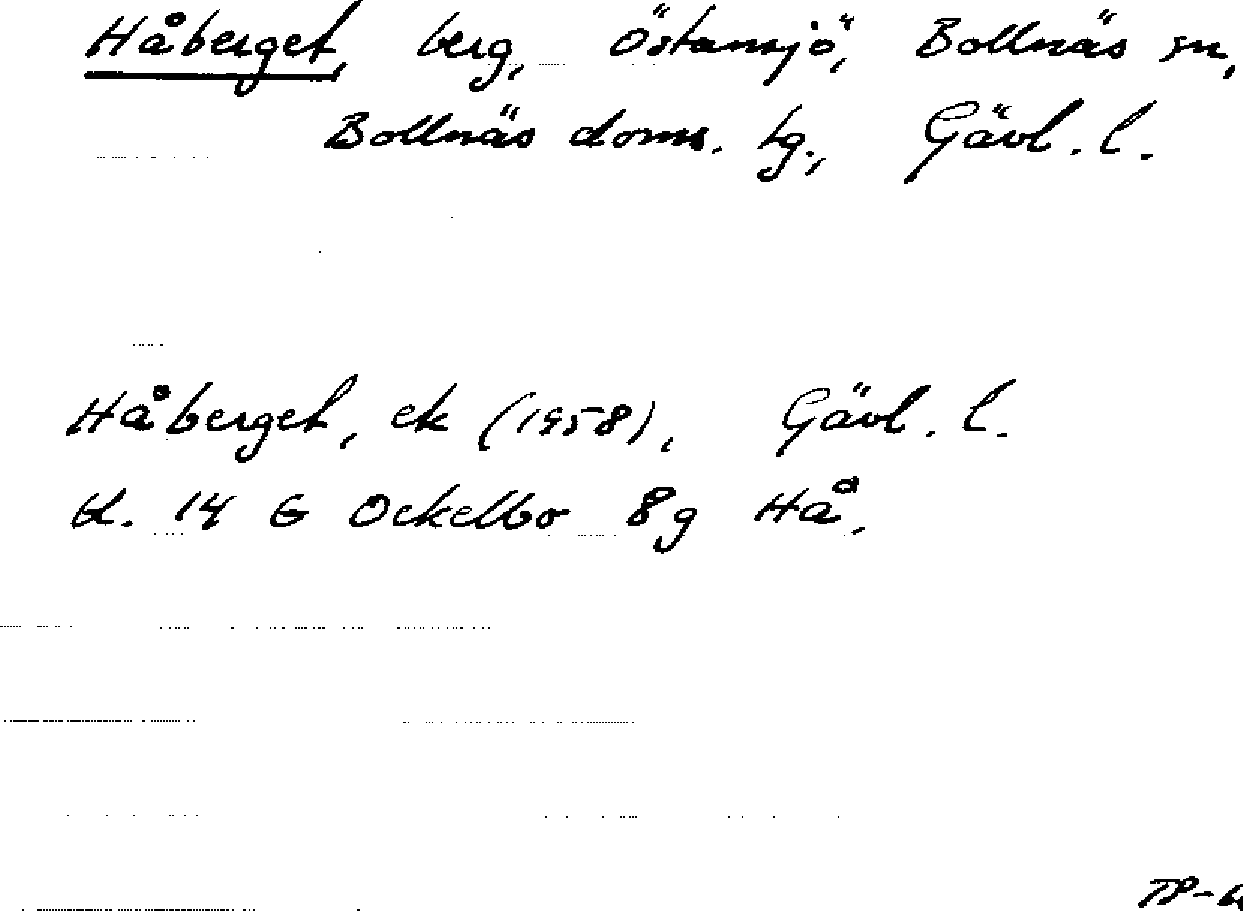 Håberget, berg, Östansjö, Bollnäs sn,
Bollnäs doms. tg., Gävl. l.
Håberget, ek (1958), Gävl. l.
bl. 14 G Ockelbo 8g Hå.